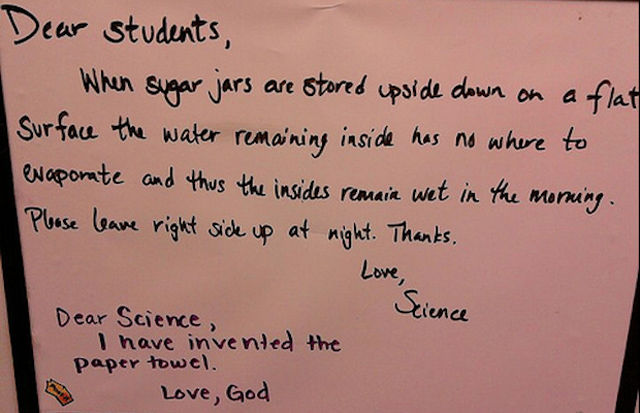 Dear students,
When sugar jars are stored upside down on a flat
surface the water remaining inside has no where to
evaporate and thus the insides remain wet in the morning.
Please leave right side up at night. Thanks.
Love,
Science
Dear Science,
I have invented the
paper towel.
Love, God